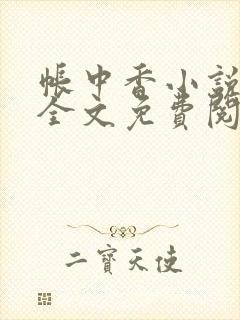 帳中香小說
全文免費閱
二寶天使